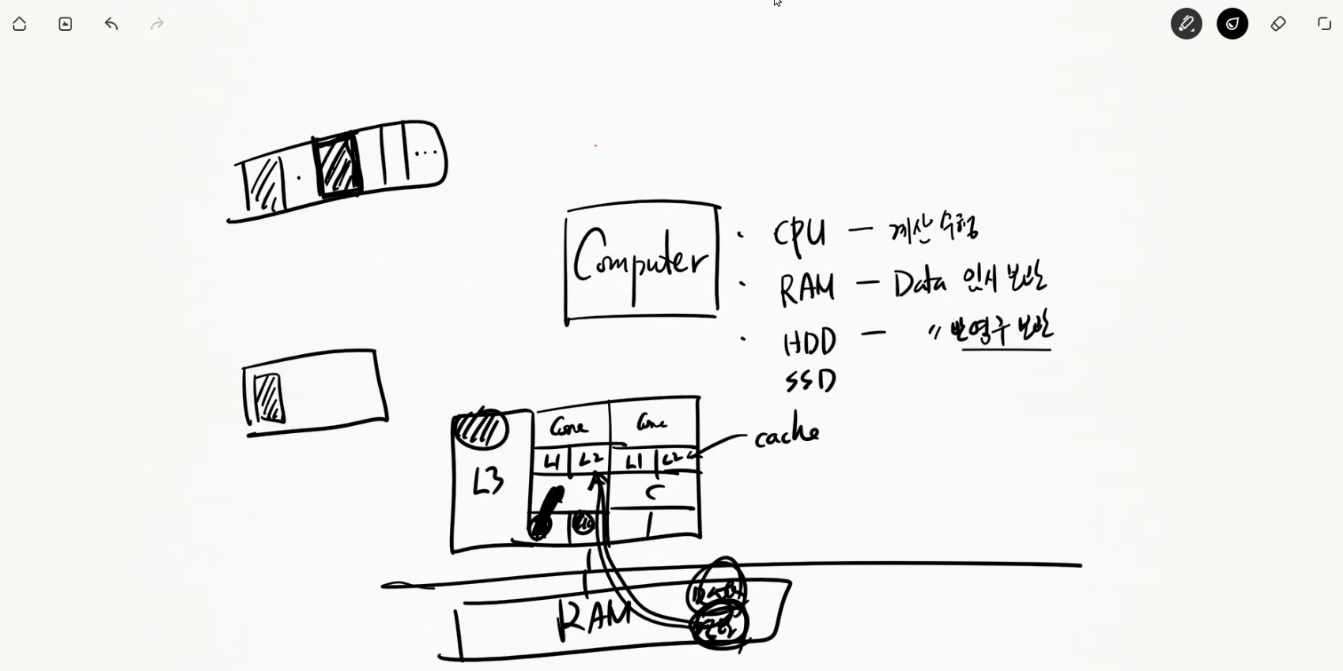 Computer
· CPU — 계산 수행
· RAM — Data 임시 보관
· HDD — 〃 반영구 보관
SSD
cache
Core Core
L1 L2 L1 L2
L3
C
RAM